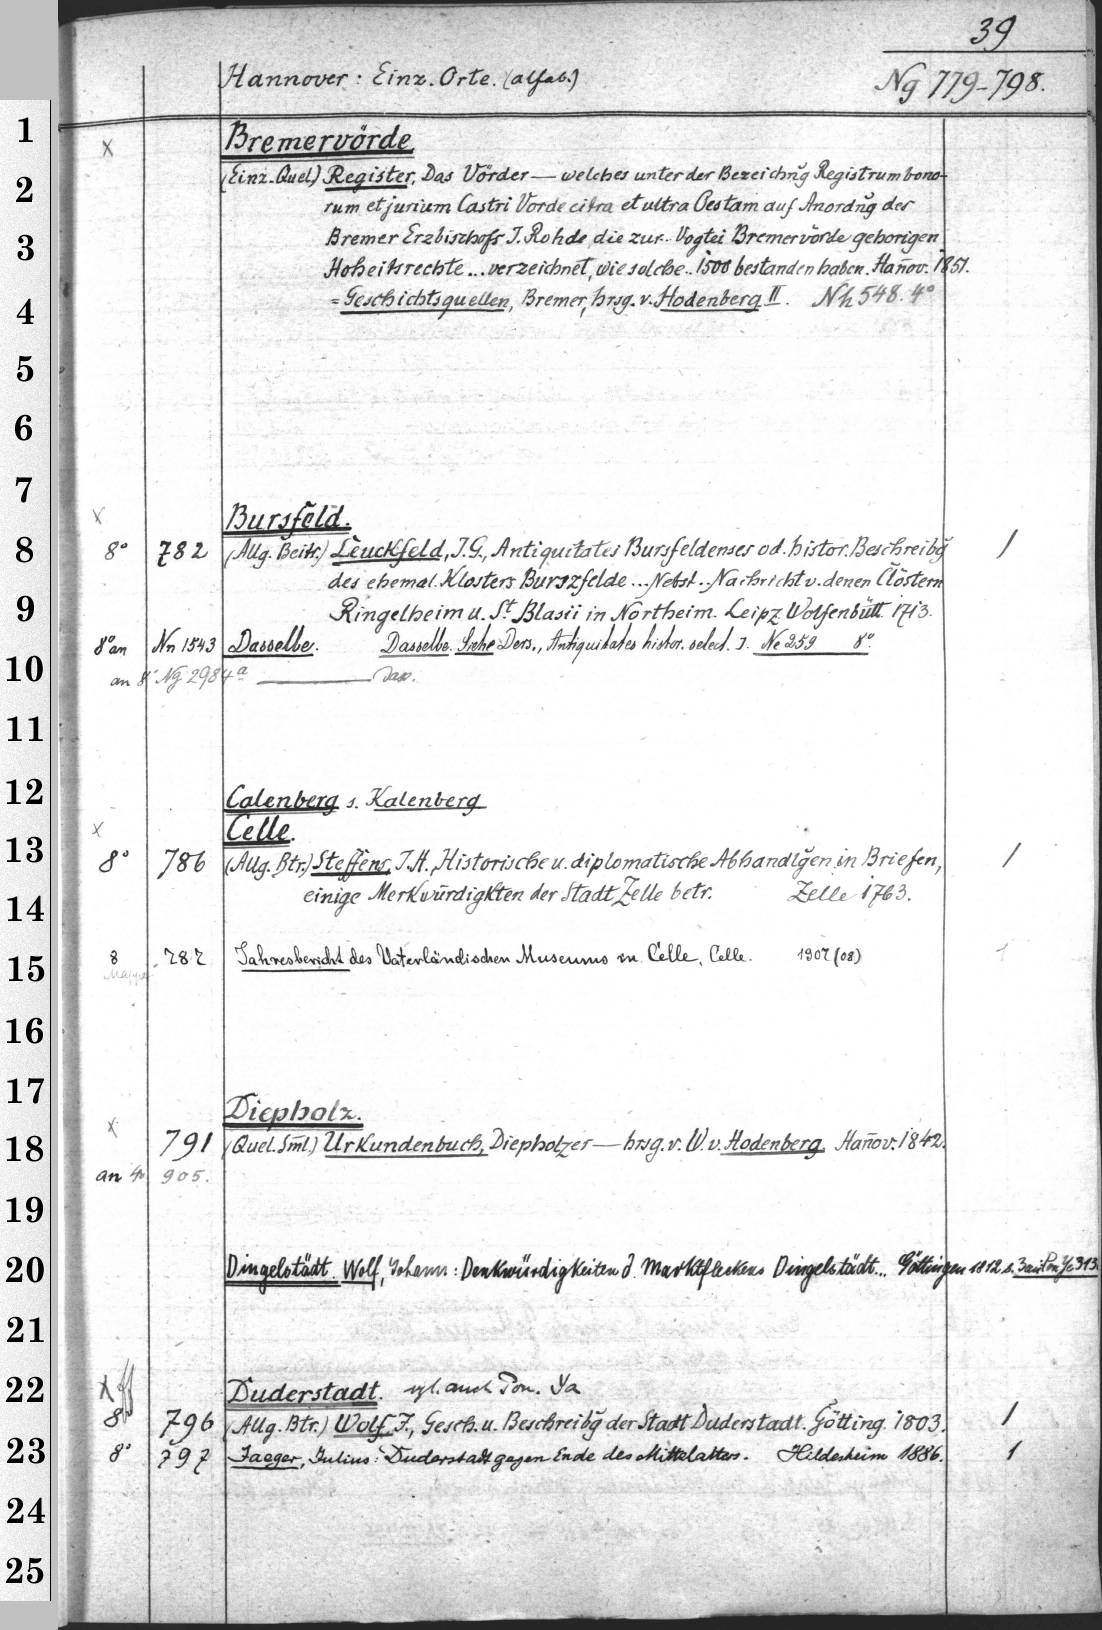 39
Hannover: Einz. Orte. (alfab.)
Ng 779-798.
1
x Bremervörde
(Einz. Quel.) Register, Das Vörder — welches unter der Bezeichn̄g Registrum bono-
2
rum et jurium Castri Vorde citra et ultra Oestam auf Anordn̄g des
3
Bremer Erzbischofs J. Rohde die zur.. Vogtei Bremervörde gehörigen
Hoheitsrechte... verzeichnet, wie solche.. 1500 bestanden haben. Han̄ov. 1851.
4
= Geschichtsquellen, Bremer, hrsg. v. Hodenberg II. Nh 548. 4°
5
6
7
x Bursfeld.
8
8° 782 (Allg. Beitr.) Leuckfeld, J.G., Antiquitates Bursfeldenses od. histor. Beschreibg̃ /
des ehemal. Klosters Burszfelde... Nebst.. Nachricht v. denen Clöstern
9
Ringelheim u. St. Blasii in Northeim. Leipz. Wolfenbütt. 1713.
8° an Nn 1543 Dasselbe. Dasselbe. Siehe Ders., Antiquitates histor. select. J. Ne 259 8°.
10
an 8° Ng 2984a ——— Das.
11
12
Calenberg s. Kalenberg
x Celle.
13
8° 786 (Allg. Btr.) Steffens, J.H., Historische u. diplomatische Abhandlg̃en in Briefen, /
14
einige Merkwürdigkten der Stadt Zelle betr. Zelle 1763.
15
8 Mappe 787 Jahresbericht des Vaterländischen Museums in Celle, Celle. 1907 (08) 1
16
17
x Diepholz.
18
791 (Quel. Sm̄l.) Urkundenbuch, Diepholzer — hrsg. v. W. v. Hodenberg. Han̄ov. 1842.
an 4° 905.
19
20
Dingelstädt. Wolf, Johann: Denkwürdigkeiten d. Marktfleckens Dingelstädt... Göttingen 1812 s. 3 an Pon Yc 313.
21
22
x Duderstadt. vgl. auch Pon. Ya
8° 796 (Allg. Btr.) Wolf, J., Gesch. u. Beschreibg̃ der Stadt Duderstadt. Götting. 1803. /
23
8° 797 Jaeger, Julius: Duderstadt gegen Ende des Mittelalters. Hildesheim 1886. 1
24
25